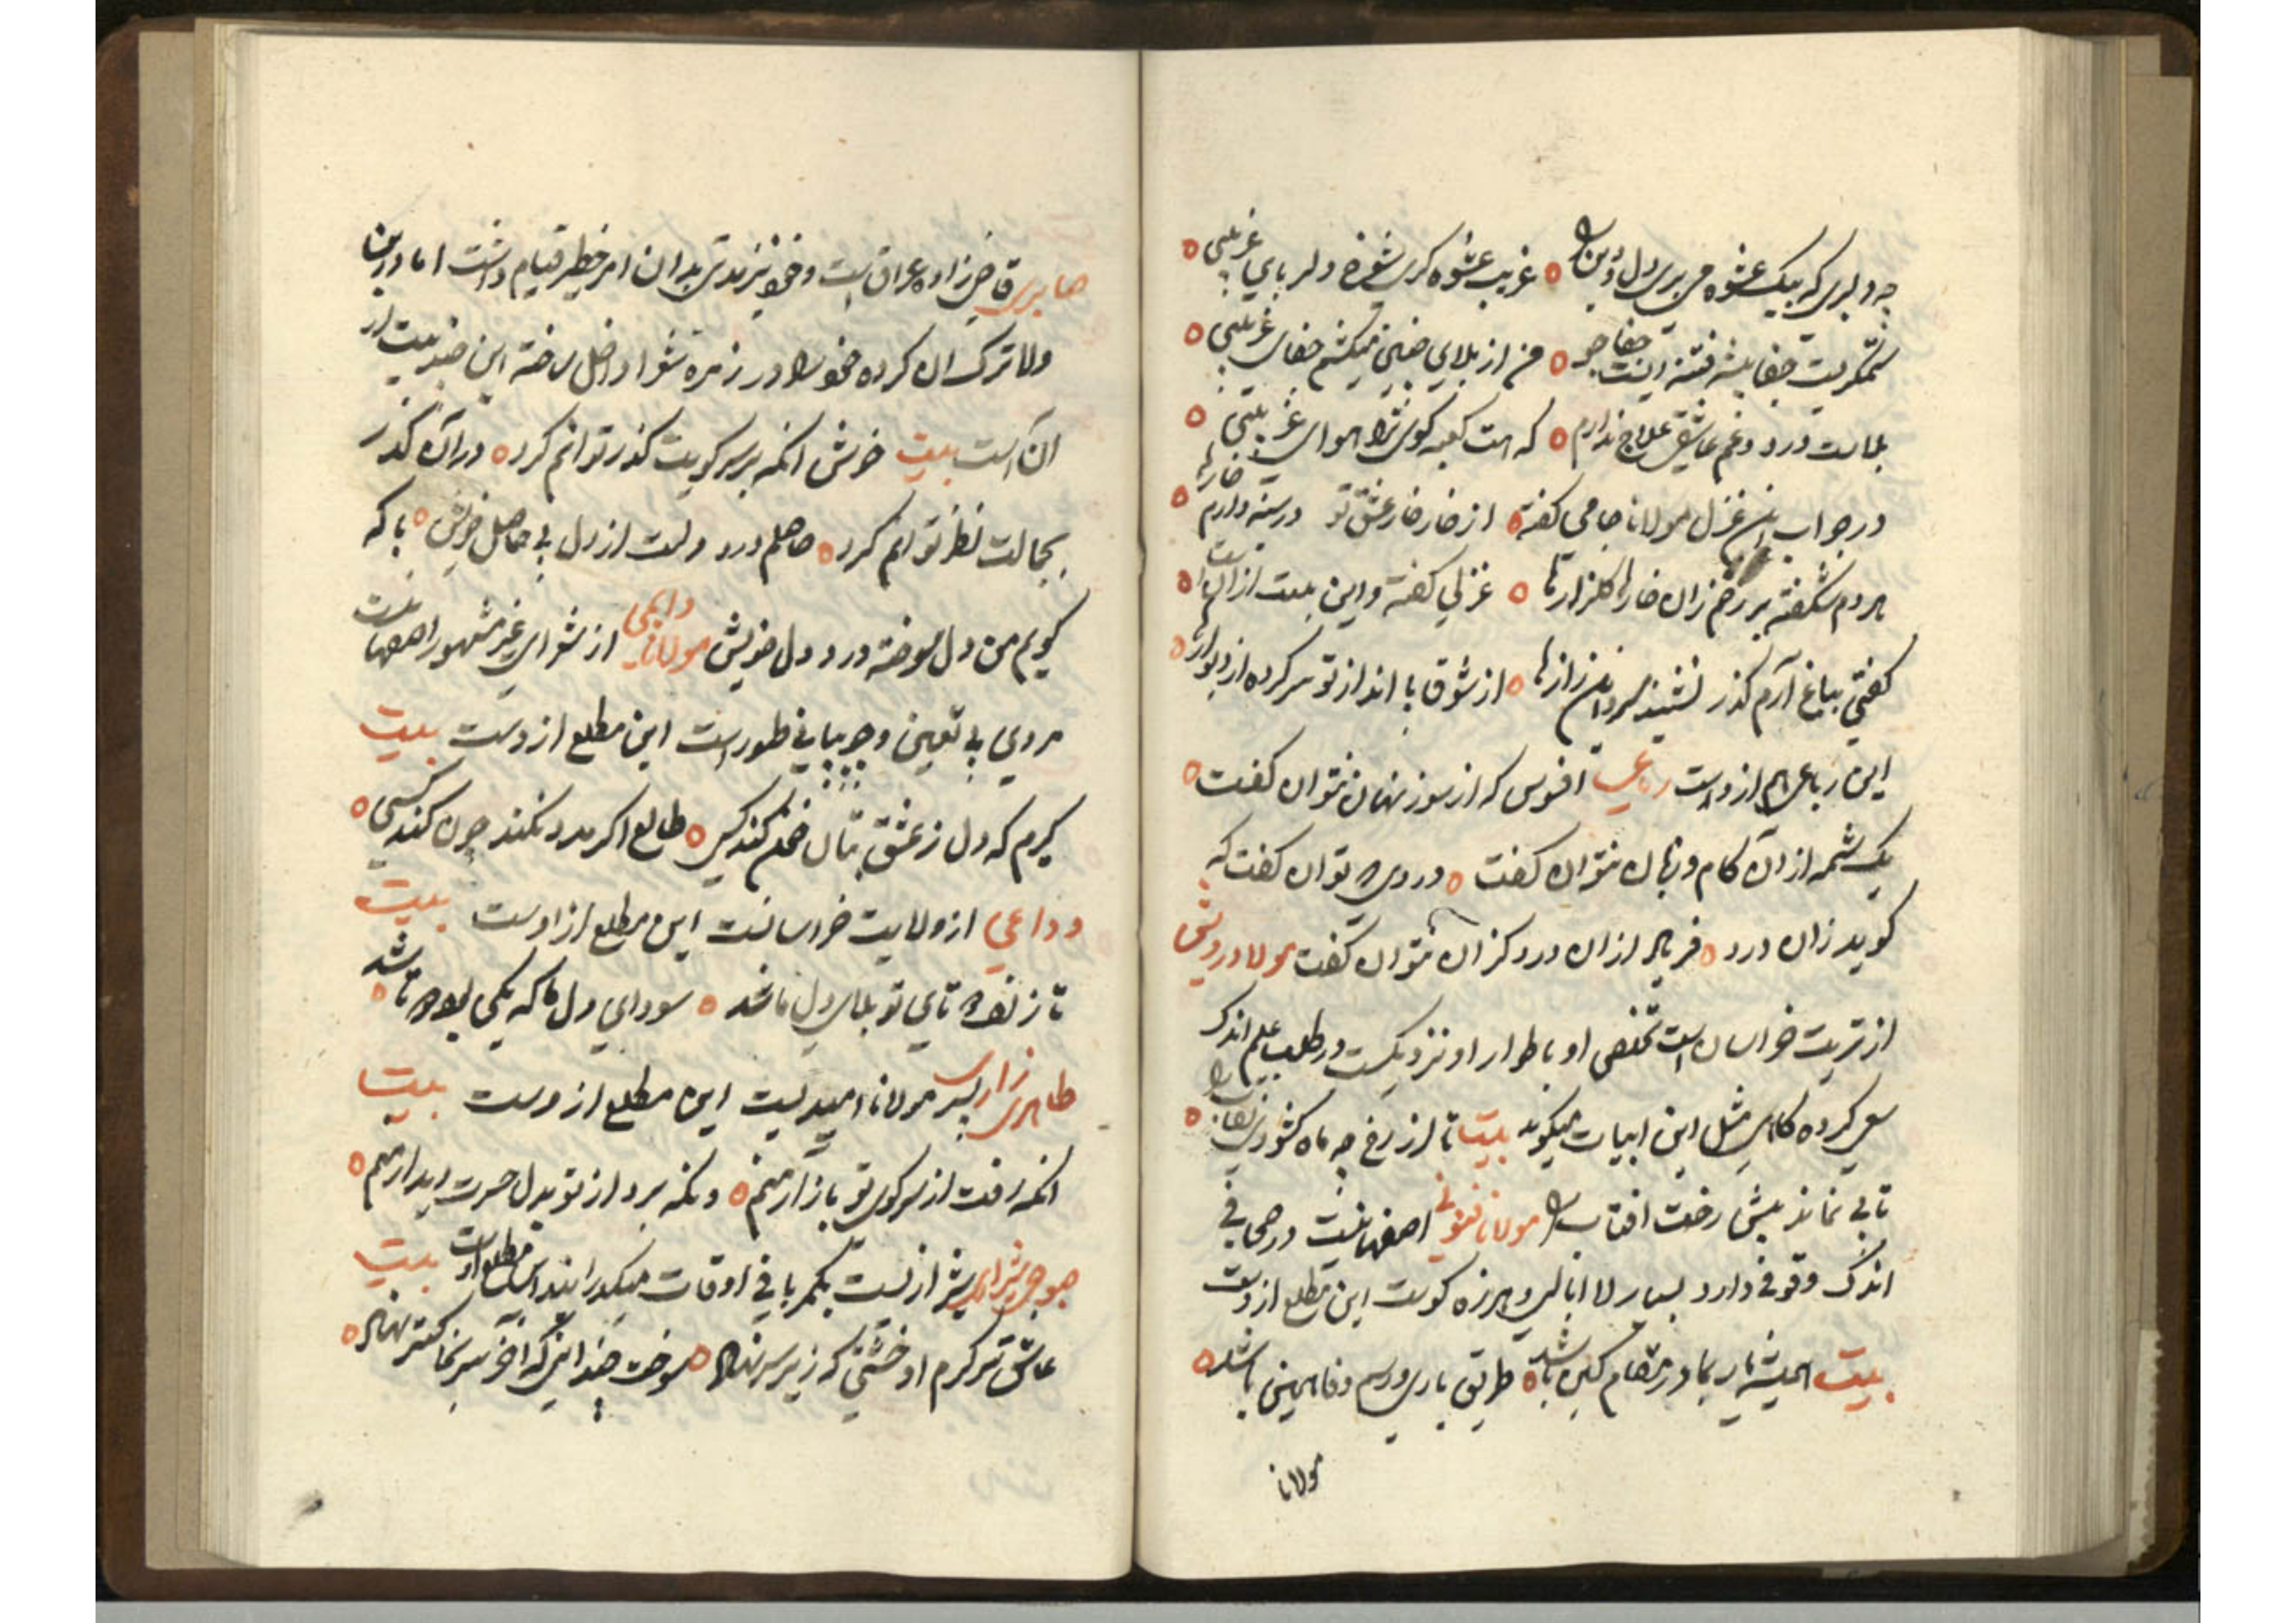 چه دلبری که بیک عشوه می بری دل و دین را ٥ غریب عشوه گری شوخ دلربای غریبی ٥
ستمگریست جفا پیشه فتنه ایست جفا جو ٥ من از بلای چنین میکشم جفای غریبی ٥
بلاست درد و غم عاشقی علاج ندارم ٥ که هست کعبه کوی ترا هوای غریبی ٥
در جواب این غزل مولانا جامی گفته ٥ از خار خار عشق تو در سینه دارم خارها ٥
هر دم شکفته بر رخم زان خارها گلزارها ٥ غزلی گفته و این بیت از آنست ٥
گفتی بباغ آرم گذر نشنید سرو این رازها ٥ از شوق پا انداز تو سر کرده از دیوارها ٥
این رباعی هم ازوست رباعی افسوس که از سوز نهان نتوان گفت ٥
یک شمه از آن کام و زبان نتوان گفت ٥ دردی که توان گفت که
گوید زان درد ٥ فریاد از آن درد کزان نتوان گفت مولانا درویشی
از تربت خراسان است تخلص او باطوار او نزدیکست در طلب علم اندک
سعی کرده گاهی مثل این ابیات میگوید بیت تا از رخ چه ماه گشودی نقاب را ٥
تابی نماند پیش رخت افتاب را مولانا فنونی اصفهانیست در صحافی
اندک وقوفی دارد بسیار لا ابالی و هرزه گوست این مطلع ازوست
بیت همیشه یار بما در مقام کین باشد ٥ طریق یاری و رسم وفا همین باشد ٥
مولانا
صابری قاضی زاده عراق است و خود نیز مدتی بدان امر خطیر قیام داشت اما درین
ولا ترک ان کرده خود را در زمره شعرا داخل ساخته این چند بیت از
آن است بیت خوش انکه بر سر کویت گذر توانم کرد ٥ در آن گذر
بجمالت نظر توانم کرد ٥ حاصلم درد دلست از دل بی حاصل خویش ٥ با که
گویم من دل سوخته درد دل خویش مولانا دایمی از شعرای غیر مشهور اصفهانست
مردی بی تعین و بی طور است این مطلع ازوست بیت
گیرم که دل ز عشق بتان کند کسی ٥ طالع اگر مدد نکند چون کند کسی ٥
وداعی از ولایت خراسانست این مطلع از اوست بیت
تا زلف تو بلای دل ما شد ٥ سودای دل ما که یکی بود باشد ٥
طاهری رازی پسر مولانا امیدیست این مطلع ازوست بیت
انکه رفت از سر کوی تو بازار منم ٥ ونکه برد از تو بدل حسرت دیدار منم ٥
صبوحی شیرازی شیراز نیست بکمر بافی اوقات میگذراند این مطلع اوست بیت
عاشق تر کرم او خشتی که زیر سر نهاد ٥ سوخت چندانی که آخر سر بخاکستر نهاد ٥